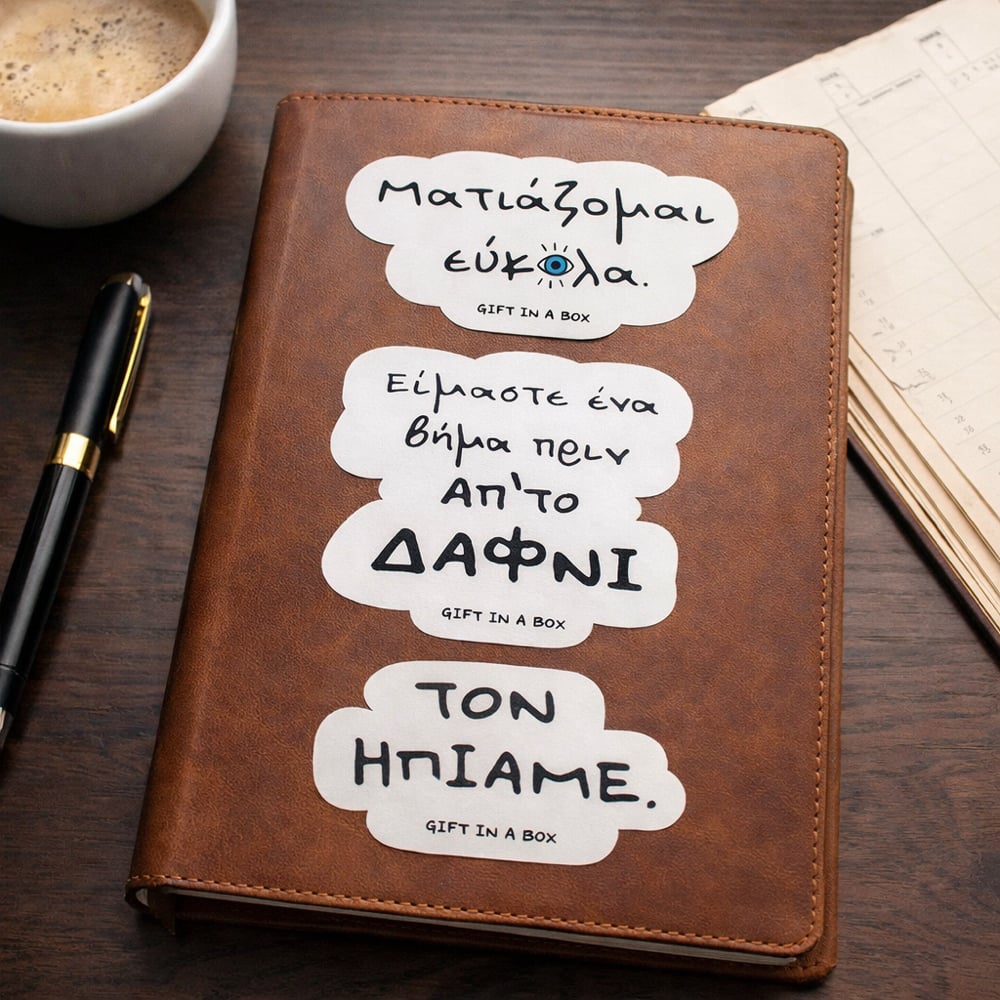 Ματιάζομαι
εύκολα.
GIFT IN A BOX
Είμαστε ένα
βήμα πριν
ΑΠ'ΤΟ
ΔΑΦΝΙ
GIFT IN A BOX
ΤΟΝ
ΗΠΙΑΜΕ.
GIFT IN A BOX